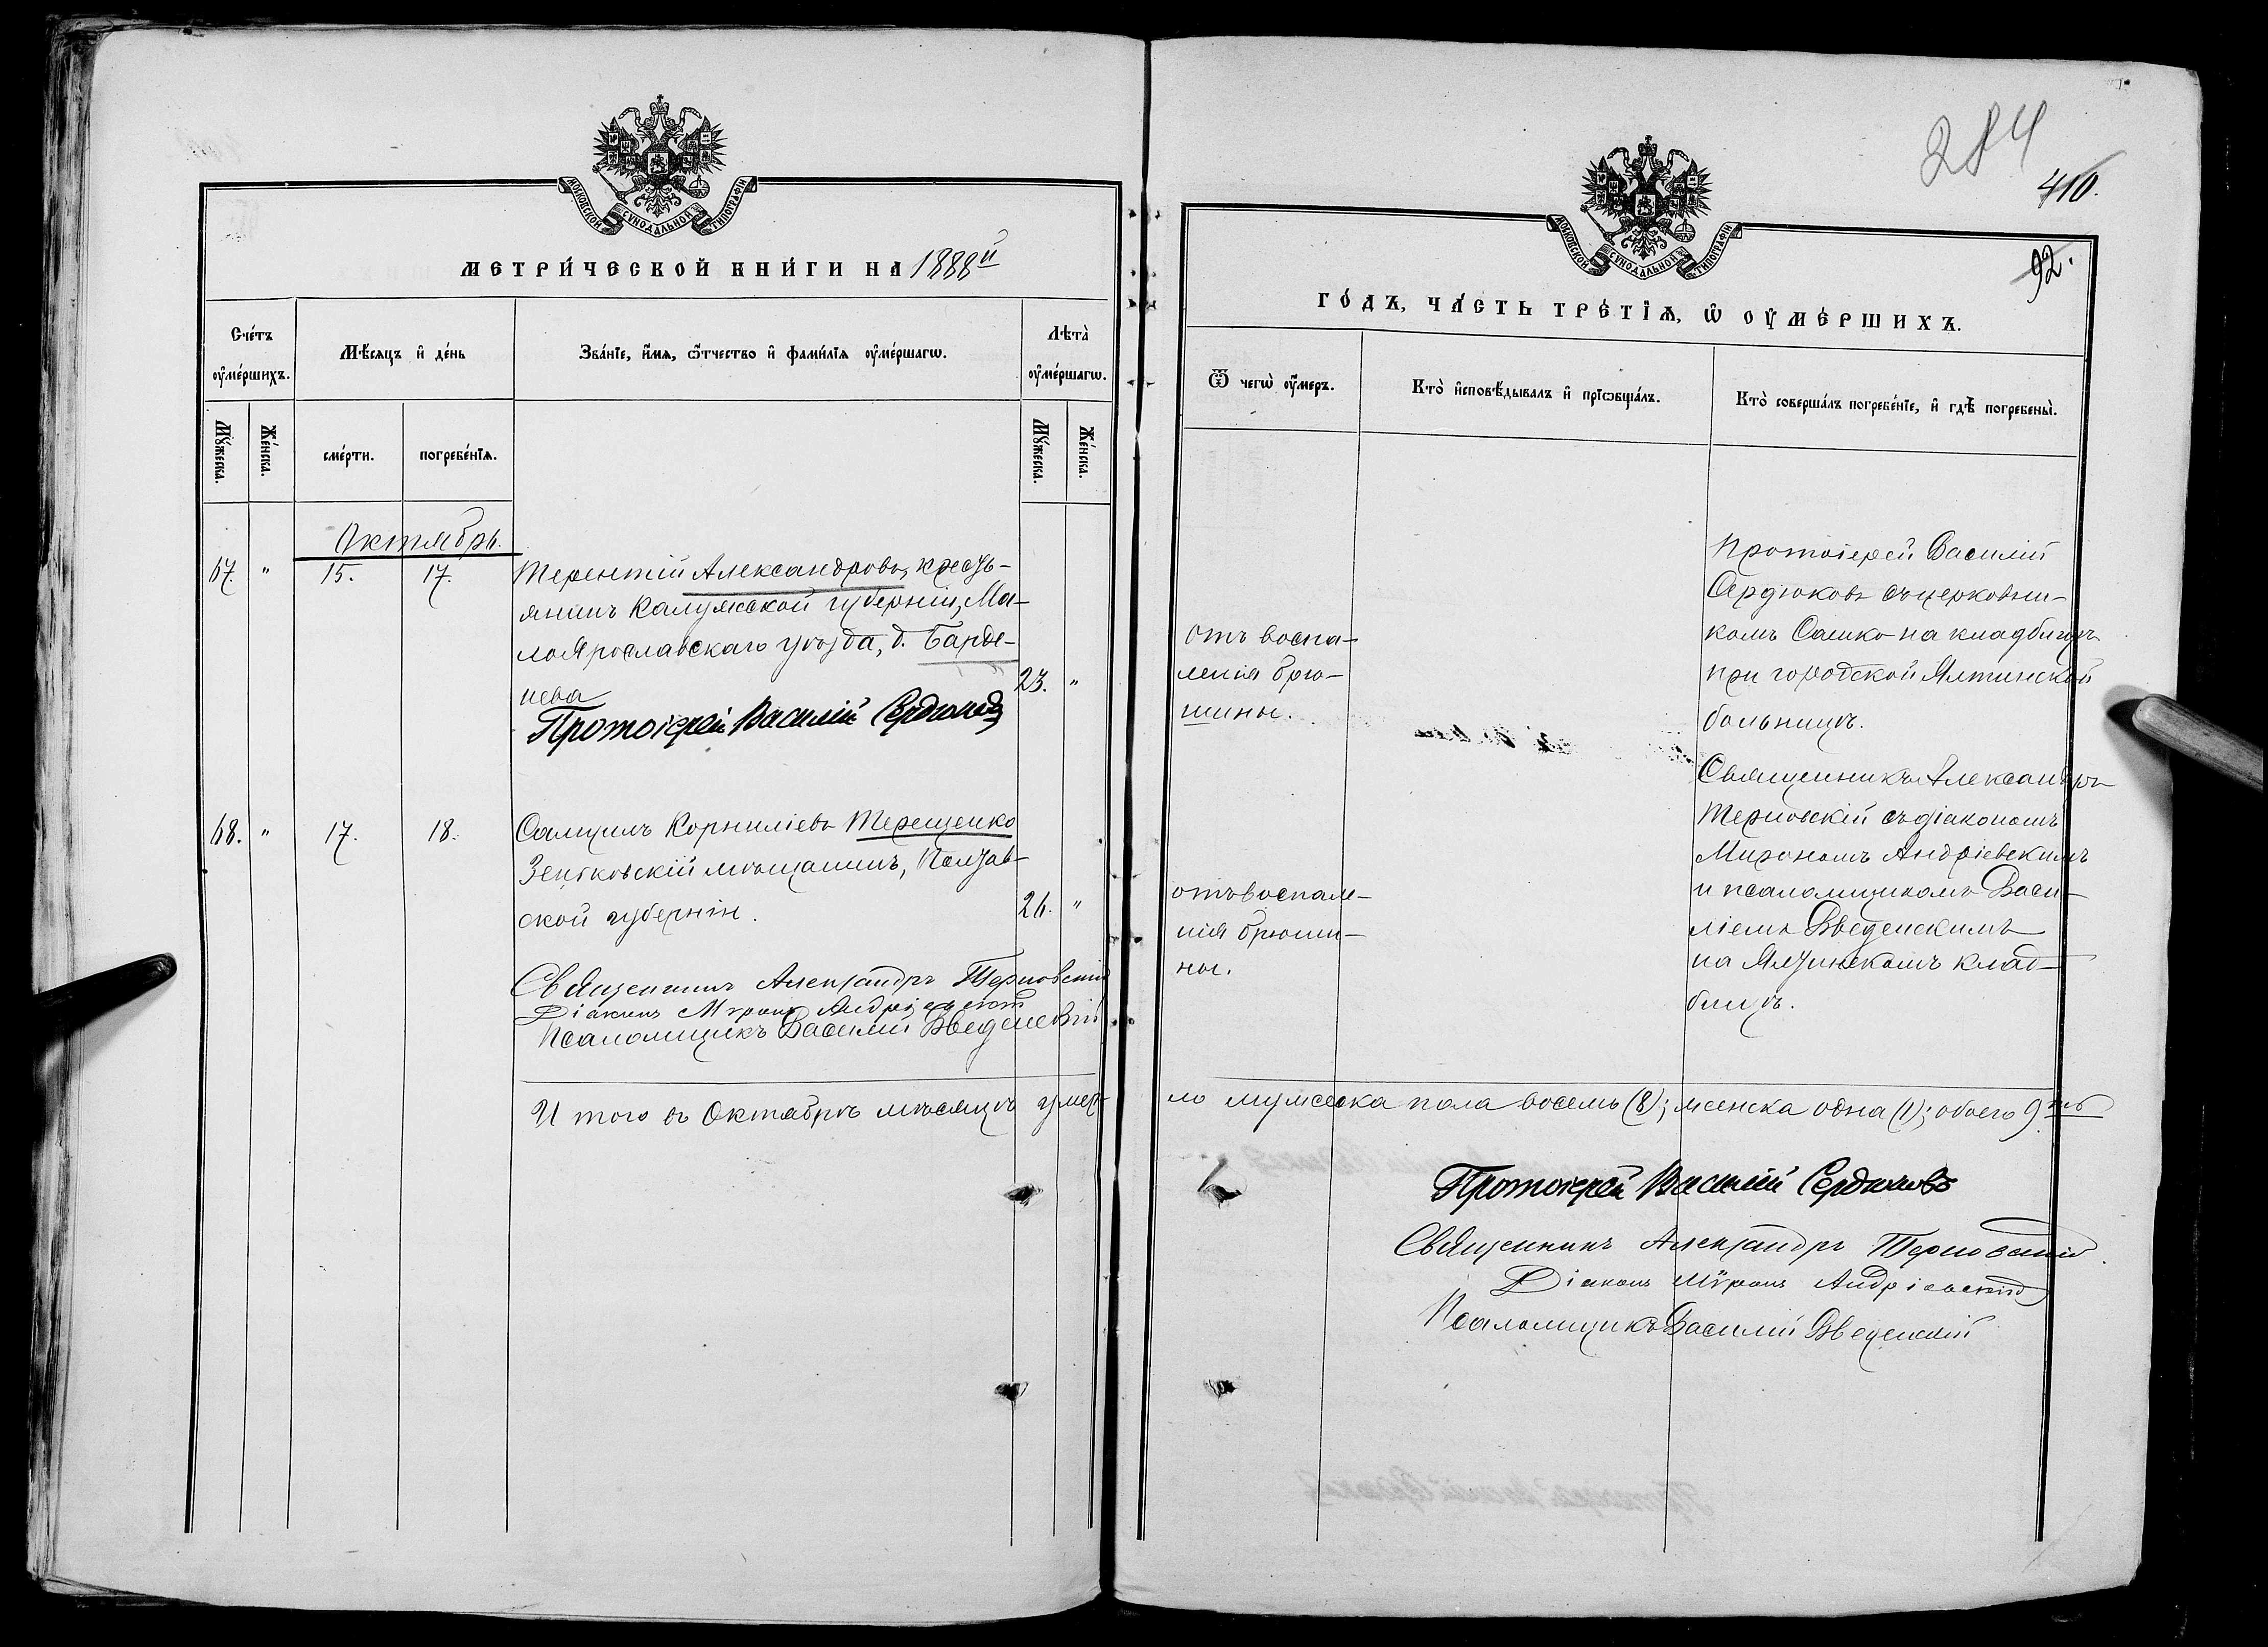 МОСКОВСКОЙ СѴНОДАЛЬНОЙ ТИПОГРАФІИ
МЕТРИ́ЧЕСКОЙ КНИ́ГИ НА 1888й
Сче́тъ ᲂу҆ме́ршихъ.
Мѣ́сяцъ и҆ де́нь
Зва́нїе, и҆́мя, ѻ҆́тчество и҆ фами́лїя ᲂу҆ме́ршагѡ.
Лѣта̀ ᲂу҆ме́ршагѡ.
Мꙋ́жеска.
Же́нска.
сме́рти.
погребе́нїя.
Мꙋ́жеска.
Же́нска.
Октябрь.
67. " 15. 17.
Терентій Александровъ, кресть-
янинъ Калужской губерніи, Ма-
лоярославскаго уѣзда, д. Барде-
нева
23. "
Протоіерей Василій Сердюковъ
68. " 17. 18.
Самуилъ Корниліевъ Терещенко
Зеньковскій мѣщанинъ, Полтав-
ской губерніи.
26. "
Священникъ Александръ Терновскій
Діаконъ Мѵронъ Андріевскій
Псаломщикъ Василій Введенскій
И того въ Октябрѣ мѣсяцѣ умер-
284
410.
92.
МОСКОВСКОЙ СѴНОДАЛЬНОЙ ТИПОГРАФІИ
ГО́ДЪ, ЧА́СТЬ ТРЕ́ТІѦ, Ѡ҆ ОУ҆МЕ́РШИХЪ.
Ѿ чегѡ̀ ᲂу҆́меръ.
Кто̀ и҆сповѣ́дывалъ и҆ прїѡбща́лъ.
Кто̀ соверша́лъ погребе́нїе, и҆ гдѣ̀ погребены̀.
отъ воспа-
ленія брю-
шины.
Протоіерей Василій
Сердюковъ съ церковни-
комъ Сашко на кладбищѣ
при городской Ялтинской
больницѣ.
отъ воспале-
нія брюши-
ны.
Священникъ Александръ
Терновскій съ діакономъ
Мирономъ Андріевскимъ
и псаломщикомъ Васи-
ліемъ Введенскимъ
на Ялтинскомъ клад-
бищѣ.
ло мужеска пола восемь (8); женска одна (1); обоего 9ть
Протоіерей Василій Сердюковъ
Священникъ Александръ Терновскій
Діаконъ Мѵронъ Андріевскій
Псаломщикъ Василій Введенскій